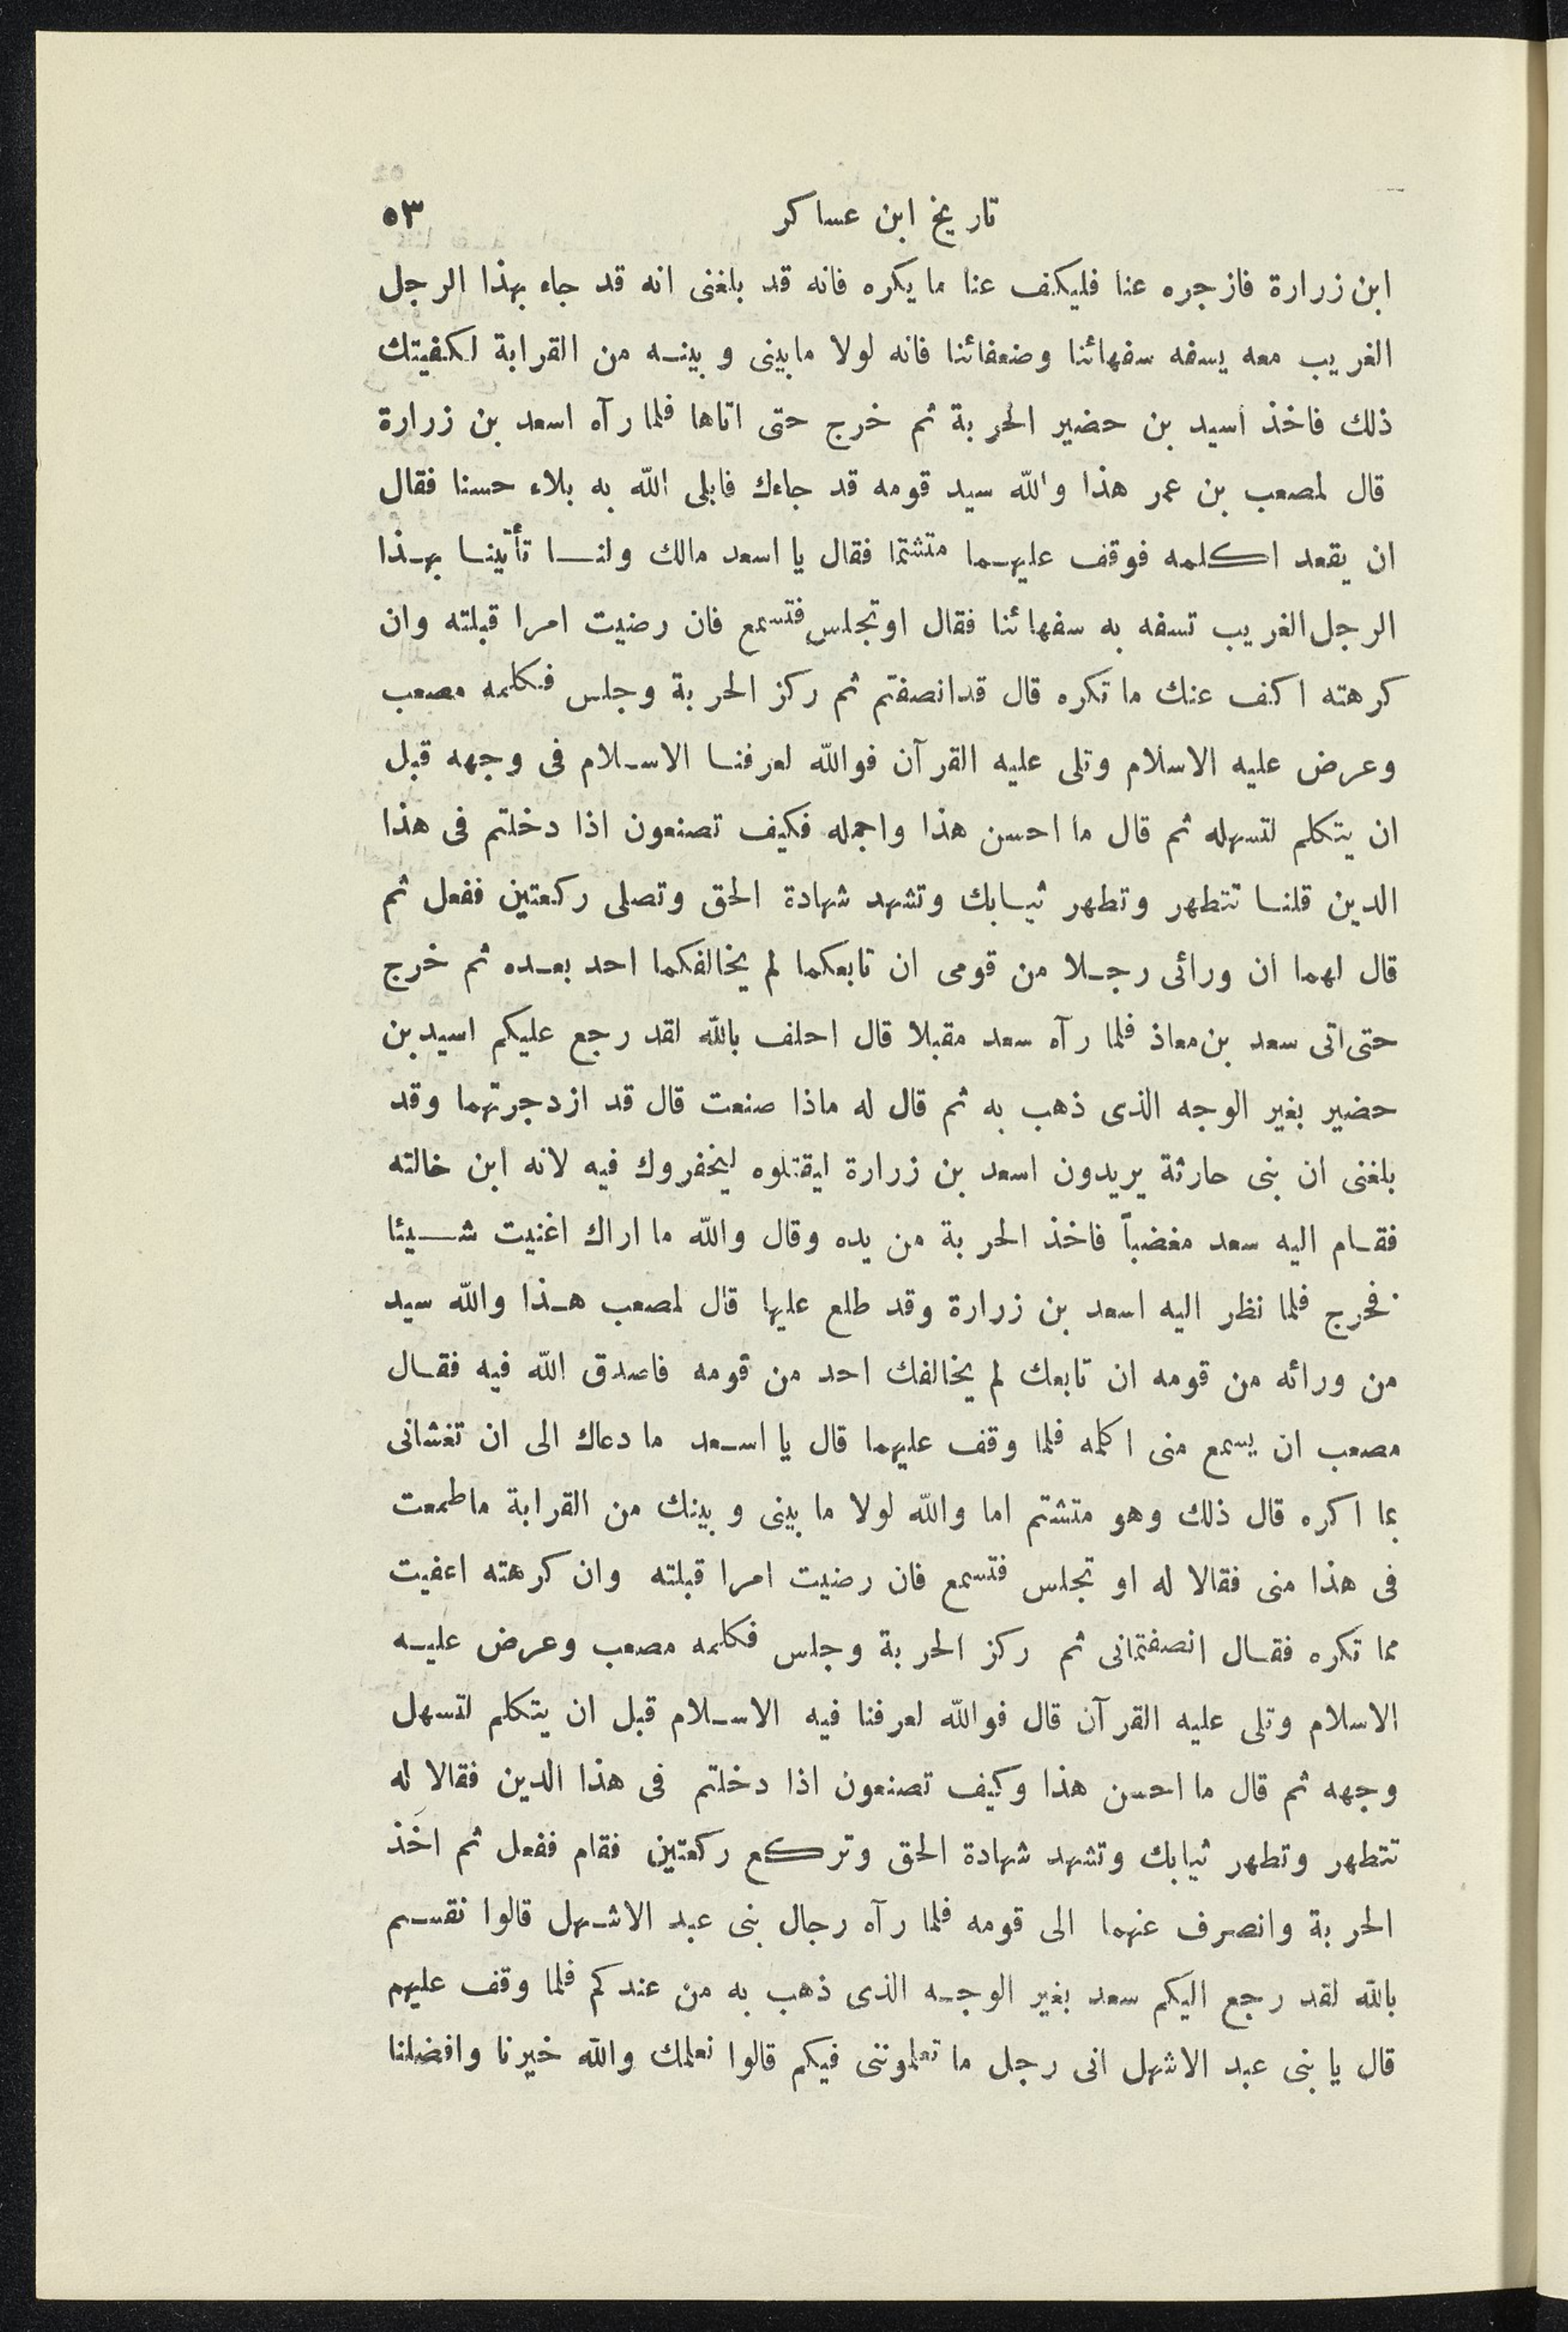 تاريخ ابن عساكر ٥٣
ابن زرارة فازجره عنا فليكف عنا ما يكره فانه قد بلغنى انه قد جاء بهذا الرجل
الغريب معه يسفه سفهائنا وضعفائنا فانه لولا مابينى وبينه من القرابة لكفيتك
ذلك فاخذ اسيد بن حضير الحربة ثم خرج حتى اتاها فلما رآه اسعد بن زرارة
قال لمصعب بن عمر هذا والله سيد قومه قد جاءك فابلى الله به بلاء حسنا فقال
ان يقعد اكلمه فوقف عليهما متشتما فقال يا اسعد مالك ولنا تأتينا بهذا
الرجل الغريب تسفه به سفهائنا فقال اوتجلس فتسمع فان رضيت امرا قبلته وان
كرهته اكف عنك ما تكره قال قدانصفتم ثم ركز الحربة وجلس فكلمه مصعب
وعرض عليه الاسلام وتلى عليه القرآن فوالله لعرفنا الاسلام فى وجهه قبل
ان يتكلم لتسهله ثم قال ما احسن هذا واجمله فكيف تصنعون اذا دخلتم فى هذا
الدين قلنا تتطهر وتطهر ثيابك وتشهد شهادة الحق وتصلى ركعتين ففعل ثم
قال لهما ان ورائى رجلا من قومى ان تابعكما لم يخالفكما احد بعده ثم خرج
حتى اتى سعد بن معاذ فلما رآه سعد مقبلا قال احلف بالله لقد رجع عليكم اسيد بن
حضير بغير الوجه الذى ذهب به ثم قال له ماذا صنعت قال قد ازدجرتهما وقد
بلغنى ان بنى حارثة يريدون اسعد بن زرارة ليقتلوه ليخفروك فيه لانه ابن خالته
فقام اليه سعد مغضباً فاخذ الحربة من يده وقال والله ما اراك اغنيت شيئا
فخرج فلما نظر اليه اسعد بن زرارة وقد طلع عليها قال لمصعب هذا والله سيد
من ورائه من قومه ان تابعك لم يخالفك احد من قومه فاصدق الله فيه فقال
مصعب ان يسمع منى اكلمه فلما وقف عليهما قال يا اسعد ما دعاك الى ان تغشانى
بما اكره قال ذلك وهو متشتم اما والله لولا ما بينى وبينك من القرابة ماطمعت
فى هذا منى فقالا له او تجلس فتسمع فان رضيت امرا قبلته وان كرهته اعفيت
مما تكره فقال انصفتمانى ثم ركز الحربة وجلس فكلمه مصعب وعرض عليه
الاسلام وتلى عليه القرآن قال فوالله لعرفنا فيه الاسلام قبل ان يتكلم لتسهل
وجهه ثم قال ما احسن هذا وكيف تصنعون اذا دخلتم فى هذا الدين فقالا له
تتطهر وتطهر ثيابك وتشهد شهادة الحق وتركع ركعتين فقام ففعل ثم اخَذ
الحربة وانصرف عنهما الى قومه فلما رآه رجال بنى عبد الاشهل قالوا نقسم
بالله لقد رجع اليكم سعد بغير الوجه الذى ذهب به من عندكم فلما وقف عليهم
قال يا بنى عبد الاشهل انى رجل ما تعلموننى فيكم قالوا نعلمك والله خيرنا وافضلنا